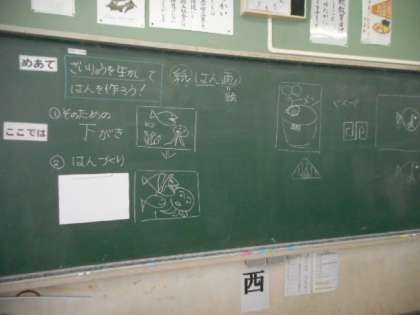 めあて
ざいりょうを生かして
はんを作ろう!
紙はん画
絵
ここでは
①そのための
下がき
②はんづくり
西